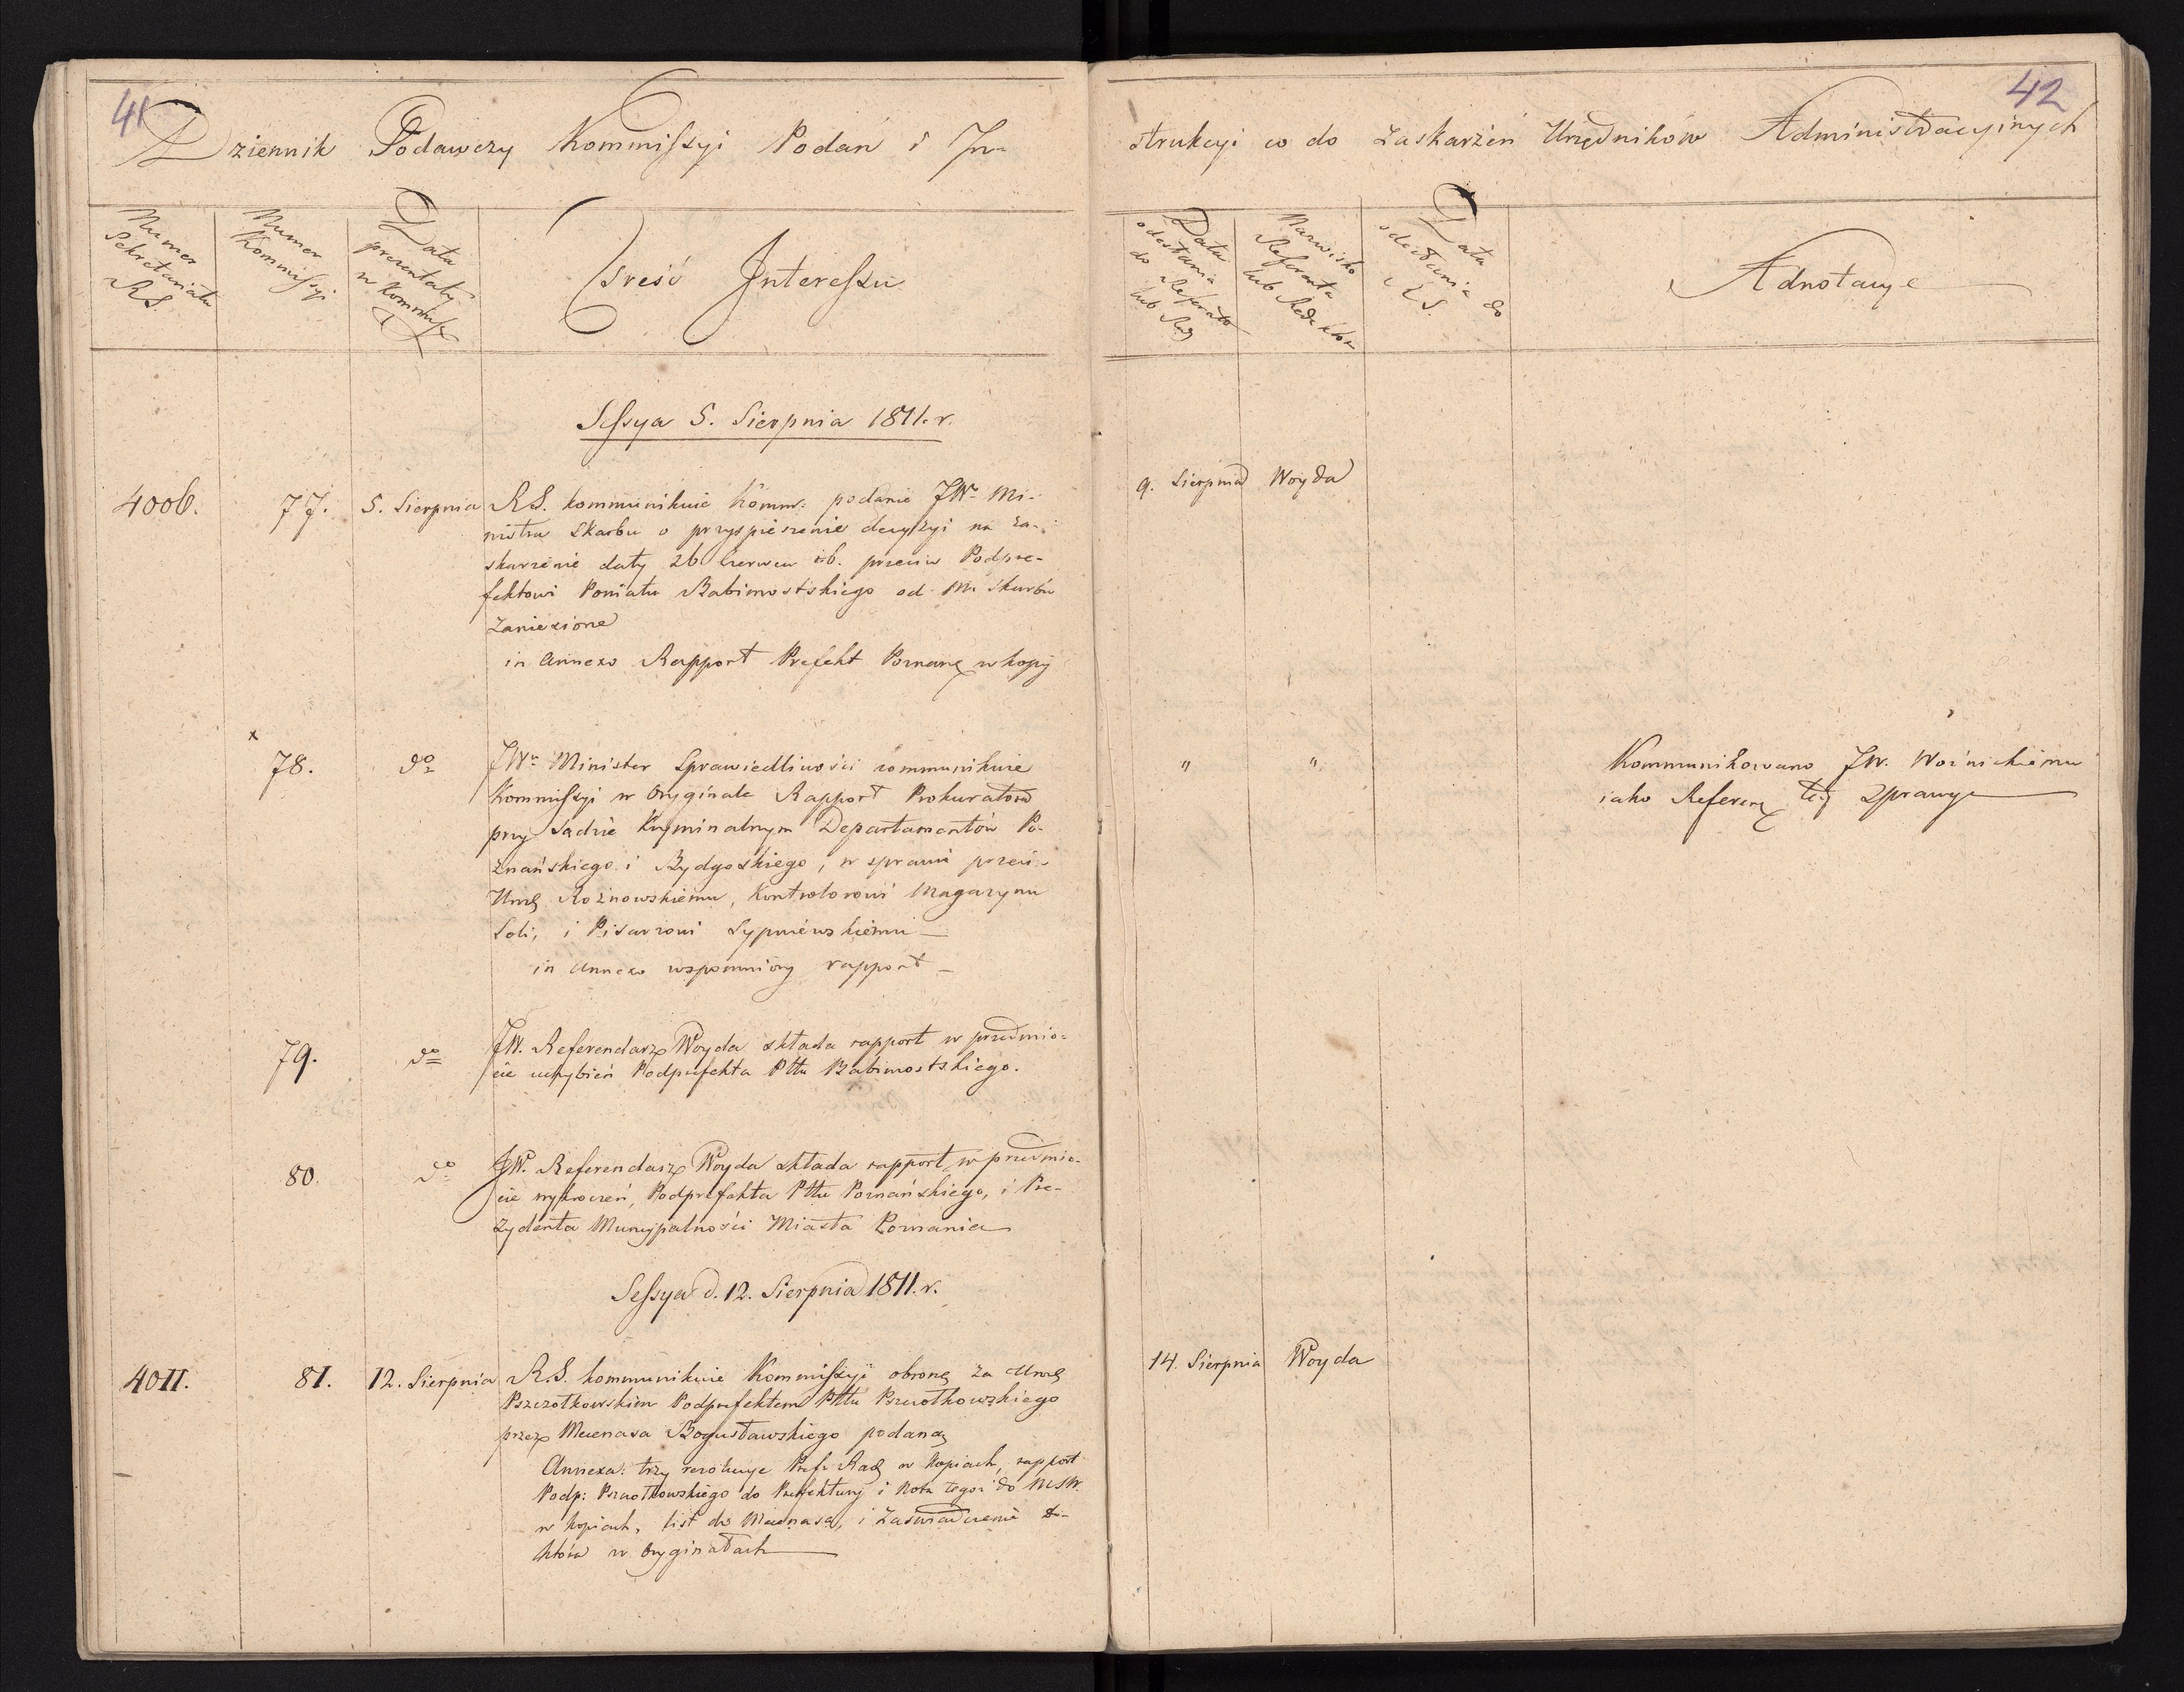 41
Dziennik Podawczy Kommissyi Podań i In-
Numer
Sekretariatu
R.S.
Numer
Kommissyi
Data
prezentaty
w Kommiss
Treść Interessu
Sessya 5. Sierpnia 1811. r.
4006. 77. 5. Sierpnia R.S. kommunikuie Komm: podanie JW. Mi-
nistra Skarbu o przyspieszenie decyzyi na za-
skarżenie daty 26 Czerwca rb. przeciw Podpre-
fektowi Powiatu Babimostskiego od M. Skarbu
zaniesione
in Annexo Rapport Prefekt Poznań w kopij
x 78. do JWn Minister Sprawiedliwości kommunikuie
Kommissyi w Oryginale Rapport Prokuratora
przy Sądzie Kryminalnym Departamentów Po-
znańskiego i Bydgoskiego, w sprawie przeciw
Rożnowskiemu, Kontrolorowi Magazynu
Soli, i Pisarzowi Sypniewskiemu
in Annexo wspomniony rapport
79. do JW. Referendarz Woyda składa rapport w przedmio-
cie uchybień Podprefekta Pttu Babimostskiego.
80. do JW. Referendarz Woyda składa rapport w przedmio-
cie wykroczeń, Podprefekta Pttu Poznańskiego, i Pre-
zydenta Municypalności Miasta Poznania
Sessya d. 12. Sierpnia 1811. r.
4011. 81. 12. Sierpnia R.S. kommunikuie Kommissyi obronę za
Pszczołkowskim Podprefektem Pttu
przez Mecenasa Bogusławskiego podaną
Annexa: trzy rezolucye Pref: w kopiach, rapport
Podp: Pszczołkowskiego do Prefektury i Nota tegoż do MSW.
w kopiach, list do Mecenasa, i Zaświadczenie
w Oryginałach
42
strukcyi co do Zaskarżeń Urzędników Administracyinych
Data
odesłania
do Referata
lub Red
Nazwisko
Referenta
lub Redaktor
Data
odesłania do
R.S.
Adnotacye
9. Sierpnia Woyda
" " Kommunikowano JW. Woźnickiemu
iako Referen tej Sprawy
14. Sierpnia Woyda